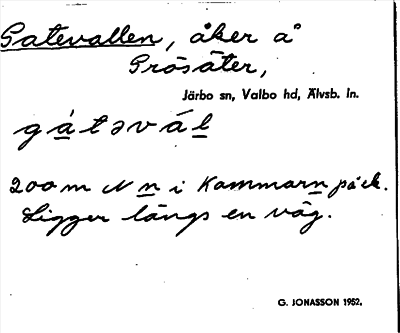 Gatevallen, åker å
Prösäter,
Järbo sn, Valbo hd, Älvsb. ln.
gàtəvál
200 m N n i Kammarn på ek.
Ligger längs en väg.
G. JONASSON 1952.